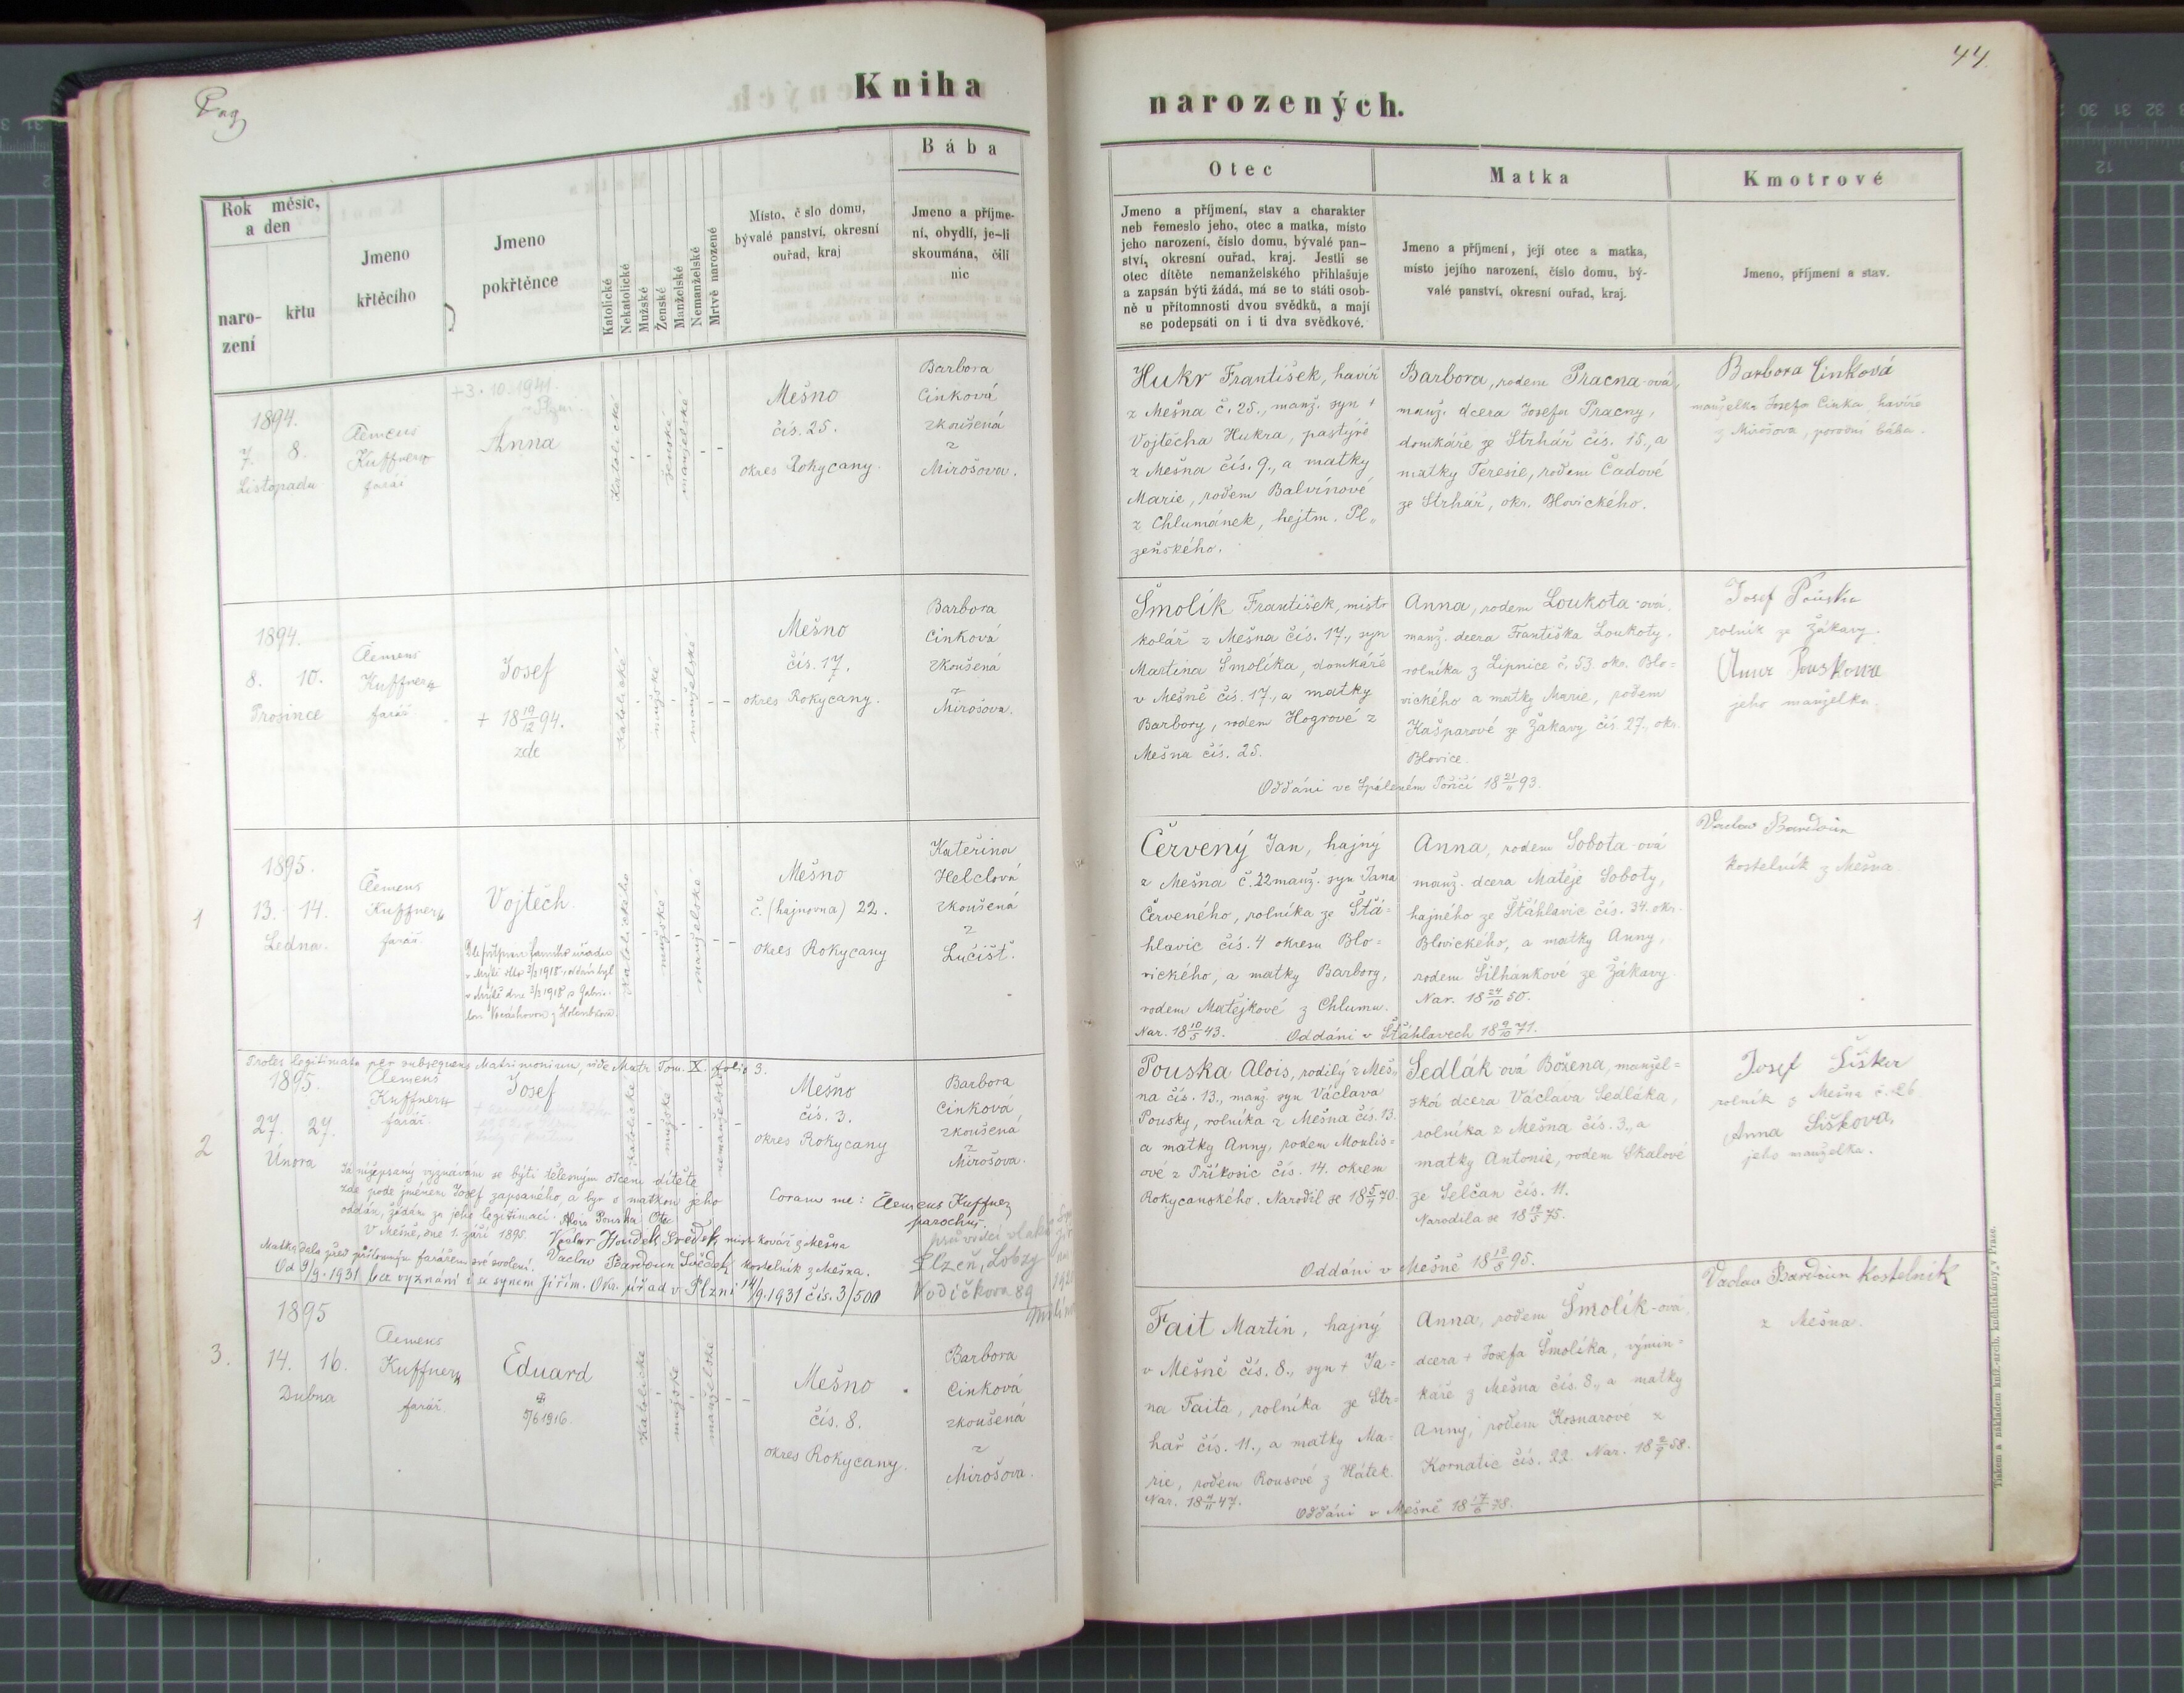 Pag
44
Kniha
narozených.
Rok měsíc,
a den
naro-
zení
křtu
Jmeno
křtěcího
Jmeno
pokřtěnce
Katolické
Nekatolické
Mužské
Ženské
Manželské
Nemanželské
Mrtvě narozené
Místo, č slo domu,
bývalé panství, okresní
ouřad, kraj
Bába
Jmeno a příjme-
ní, obydlí, je-li
skoumána, čili
nic
Otec
Jmeno a příjmení, stav a charakter
neb řemeslo jeho, otec a matka, místo
jeho narození, číslo domu, bývalé pan-
ství, okresní ouřad, kraj. Jestli se
otec dítěte nemanželského přihlašuje
a zapsán býti žádá, má se to státi osob-
ně u přítomnosti dvou svědků, a mají
se podepsati on i ti dva svědkové.
Matka
Jmeno a příjmení, její otec a matka,
místo jejího narození, číslo domu, bý-
valé panství, okresní ouřad, kraj.
Kmotrové
Jmeno, příjmení a stav.
1894.
7. 8.
Listopadu
Clemens
Kuffner
farář
+3.10.1941.
Anna
Katolické
ženské
manželské
Mešno
čís. 25.
okres Rokycany.
Barbora
Cinková
zkoušená
z
Mirošova.
Hukr František, havíř
z Mešna č. 25., manž. syn
Vojtěcha Hukra, pastýře
z Mešna čís. 9., a matky
Marie, rodem Balvínové
z Chlumánek, hejtm. Pl„
zeňského.
Barbora, rodem Pracna-ová,
manž. dcera Josefa Pracny,
domkáře ze Strhář čís. 15., a
matky Teresie, rodem Čadové
ze Strhář, okr. Blovického.
Barbora Cinková
manželka Josefa Cinka, havíře
z Mirošova, porodní bába.
1894.
8. 10.
Prosince
Clemens
Kuffner
farář
Josef
+ 18 19/12 94.
zde
Katolické
mužské
manželské
Mešno
čís. 17.
okres Rokycany.
Barbora
Cinková
zkoušená
z
Mirošova.
Šmolík František, mistr
kolář z Mešna čís. 17., syn
Martina Šmolíka, domkáře
v Mešně čís. 17., a matky
Barbory, rodem Hogrové z
Mešna čís. 25.
Anna, rodem Loukota-ová,
manž. dcera Františka Loukoty,
rolníka z Lipnice č. 53. okr. Blo=
vického a matky Marie, rodem
Kašparové ze Žákavy čís. 27., okr.
Blovice.
Oddáni ve Spáleném Poříčí 18 21/11 93.
Josef Pouska
rolník ze Žákavy.
Anna Pouskowa
jeho manželka.
1
1895.
13. 14.
Ledna.
Clemens
Kuffner
farář.
Vojtěch.
Katolického
mužské
manželské
Mešno
č. (hajnovna) 22.
okres Rokycany
Kateřina
Helclová
zkoušená
z
Lučišť.
Červený Jan, hajný
z Mešna č. 22 manž. syn Jana
Červeného, rolníka ze Štá=
hlavic čís. 4 okresu Blo=
vického, a matky Barbory,
rodem Matějkové z Chlumu.
Nar. 18 10/5 43.
Anna, rodem Sobota-ová
manž. dcera Matěje Soboty,
hajného ze Štáhlavic čís. 34. okr.
Blovického, a matky Anny,
rodem Šilhánkové ze Žákavy.
Nar. 18 24/10 50.
Oddáni v Štáhlavech 18 9/10 71.
Vaclav Bardoun
kostelník z Mešna
Proles legitimata per subsequens Matrimonium, vide Matr. Tom. X. folio 3.
2
1895.
27. 27.
Února
Clemens
Kuffner
farář.
Josef
Katolické
mužské
nemanželské
Mešno
čís. 3.
okres Rokycany
Barbora
Cinková,
zkoušená
z
Mirošova.
Já nížepsaný vyznávám se býti tělesným otcem dítěte
zde pode jménem Josef zapsaného, a byv s matkou jeho
oddán, žádám za jeho legitimaci. Alois Pouska Otec
V Mešně, dne 1. září 1895.
Svědek mistr kovář z Mešna
Matka dala před přítomným farářem své svolení.
Vaclav Bardoun Svědek kostelník z Mešna.
Coram me: Clemens Kuffner
parochus.
Od 9/9. 1931 bez vyznání i se synem Jiřím. Okr. úřad v Plzni 14/9. 1931 čís. 3/500
průvodčí vlaku
Plzeň, Lobzy
Vodičkova 89
Pouska Alois, rodilý z Meš„
na čís. 13., manž. syn Václava
Pousky, rolníka z Mešna čís. 13.
a matky Anny, rodem Moulis=
ové z Příkosic čís. 14. okresu
Rokycanského. Narodil se 18 5/4 70.
Sedlák ová Božena, manžel=
ská dcera Václava Sedláka,
rolníka z Mešna čís. 3., a
matky Antonie, rodem Skalové
ze Selčan čís. 11.
Narodila se 18 12/5 75.
Oddáni v Mešně 18 18/8 95.
Josef Šiška
rolník z Mešna č. 26
Anna Šiškova,
jeho manželka.
3.
1895
14. 16.
Dubna
Clemens
Kuffner
farář.
Eduard
5/6 1916.
Katolické
mužské
manželské
Mešno
čís. 8.
okres Rokycany.
Barbora
Cinková
zkoušená
z
Mirošova.
Fait Martin, hajný
v Mešně čís. 8., syn + Ja=
na Faita, rolníka ze Str=
hař čís. 11., a matky Ma=
rie, rodem Rousové z Hátek.
Nar. 18 4/11 47.
Anna, rodem Šmolík-ová,
dcera + Josefa Šmolíka, výmin=
káře z Mešna čís. 8., a matky
Anny, rodem Kosnarové z
Kornatic čís. 22. Nar. 18 2/9 58.
Oddáni v Mešně 18 17/6 78.
Vaclav Bardoun Kostelník
z Mešna.